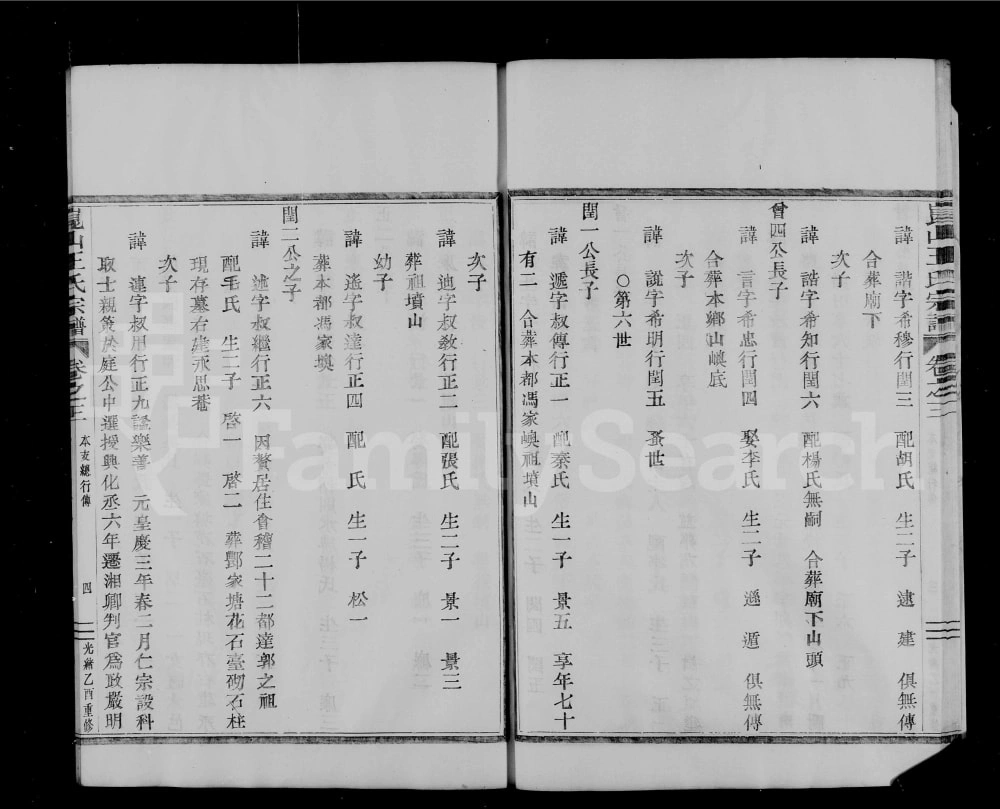 諱 諧字希穆行閏三 配胡氏 生二子 逮 建 俱無傳
合葬廟下
次子
諱 誥字希知行閏六 配楊氏無嗣 合葬廟下山頭
曾四公長子
諱 言字希忠行閏四 娶李氏 生二子 遜 遁 俱無傳
合葬本鄉山嶴底
次子
諱 說字希明行閏五 蚤世
○第六世
閏一公長子
諱 遞字叔傳行正一 配秦氏 生一子 景五 享年七十
有二 合葬本都馮家嶴祖墳山
次子
諱 迪字叔教行正二 配張氏 生二子 景一 景三
葬祖墳山
幼子
諱 遙字叔達行正四 配 氏 生一子 松一
葬本都馮家嶴
閏二公之子
諱 述字叔繼行正六 因贅居住會稽二十二都達郭之祖
配毛氏 生二子 啓一 啓二 葬鄧家塘花石臺砌石柱
現存墓右建永思菴
次子
諱 連字叔用行正九諡樂善 元皇慶三年春二月仁宗設科
取士親策於庭公中選授興化丞六年遷湘鄉判官為政嚴明
王氏宗譜 卷之三 本支總行傳 四 光緒乙酉重修
FamilySearch